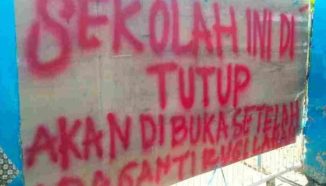 SEKOLAH INI DI
TUTUP
AKAN DI BUKA SETELAH
GANTI RUGI